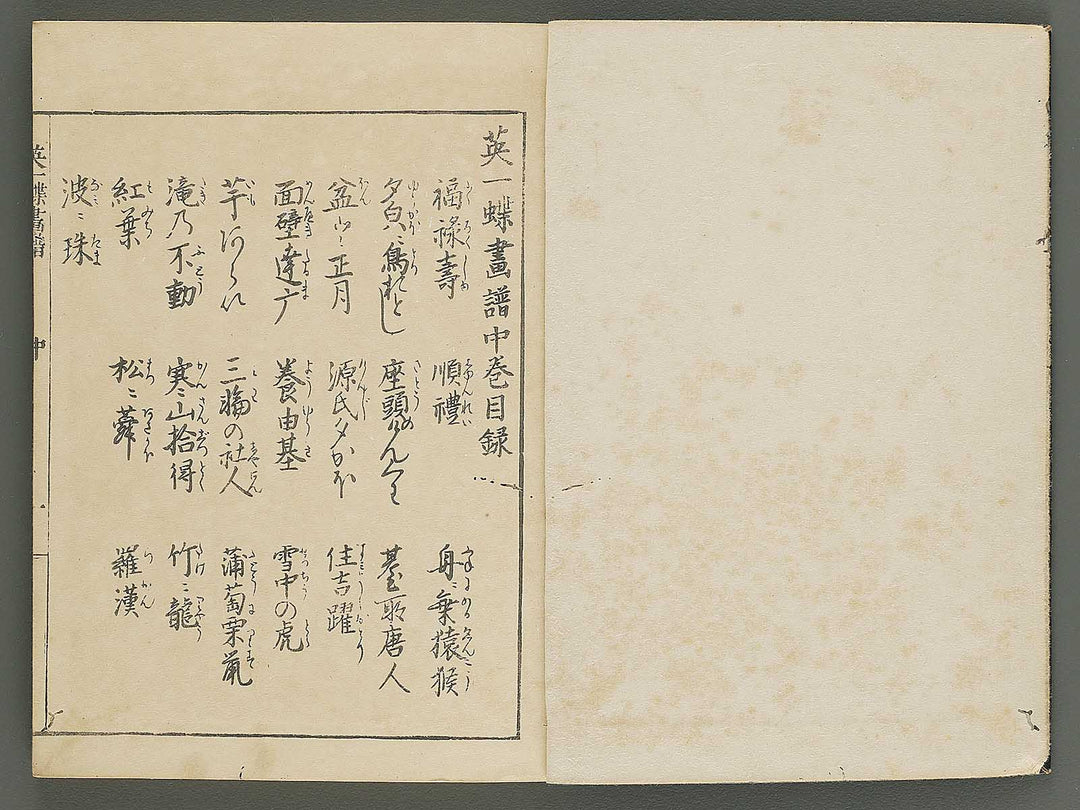 英一蝶畫譜中巻目録
福禄壽 順禮 身ニ乗猿猴
夕皃ニ烏 座頭 唐人
盆と正月 源氏夕かほ 住吉躍
面壁達广 養由基 雪中の虎
芋 三輪の社人 蒲萄栗鼠
滝乃不動 寒山拾得 竹ニ龍
紅葉 松ニ 羅漢
波ニ珠
英一蝶畫譜 中 一